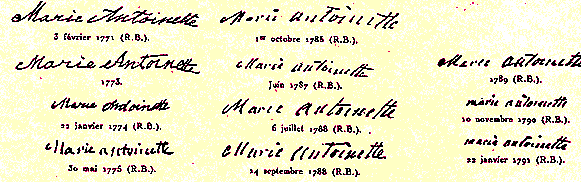 Marie Antoinette
3 février 1771 (R.B.).
Marie Antoinette
1773.
Marie Antoinette
22 janvier 1774 (R.B.).
Marie antoinette
30 mai 1775 (R.B.).
Marie antoinette
1er octobre 1786 (R.B.).
Marie Antoinette
Juin 1787 (R.B.).
Marie Antoinette
6 juillet 1788 (R.B.).
Marie Antoinette
24 septembre 1788 (R.B.).
Marie antoinette
1789 (R.B.).
marie antoinette
10 novembre 1790 (R.B.).
marie antoinette
22 janvier 1791 (R.B.).